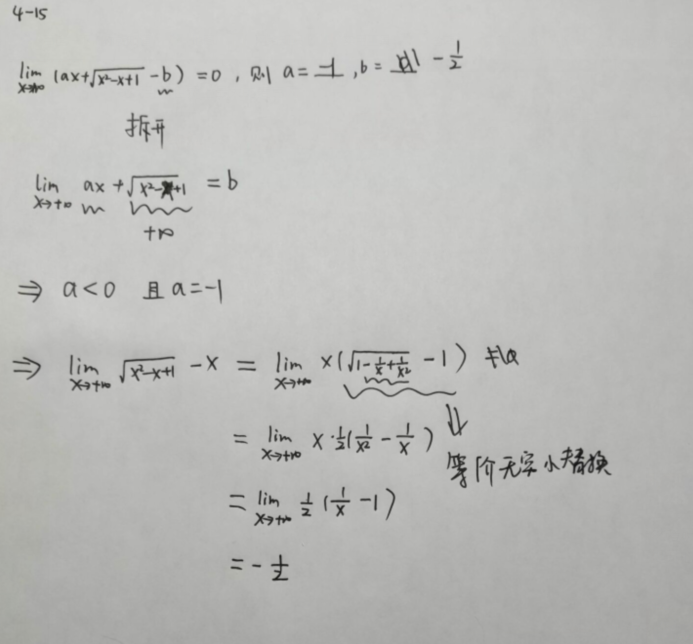 4-15
lim x→+∞ (ax+√(x²-x+1) -b) =0, 则 a= -1, b= -1/2
拆开
lim x→+∞ ax+√(x²-x+1) =b
+∞
⇒ a<0 且 a=-1
⇒ lim x→+∞ √(x²-x+1) -x = lim x→+∞ x(√(1-1/x+1/x²) -1)
= lim x→+∞ x·1/2(1/x²-1/x) ⇓
等价无穷小替换
= lim x→+∞ 1/2(1/x-1)
= -1/2